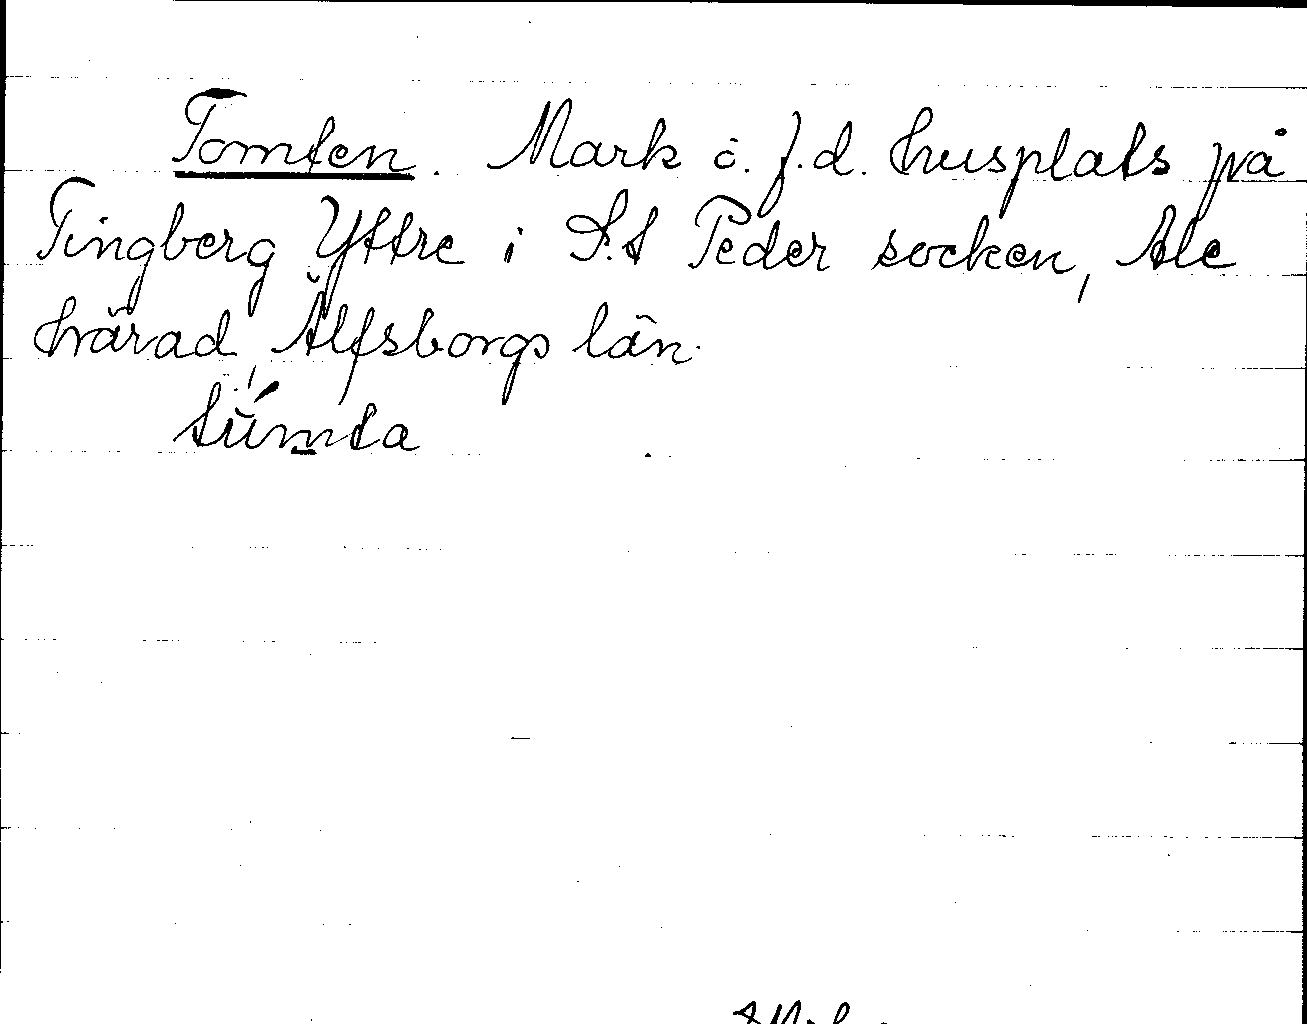 Tomten. Mark o. f.d. husplats på
Tingberg Yttre i S:t Peder socken, Ale
härad, Älfsborgs län.
túmta